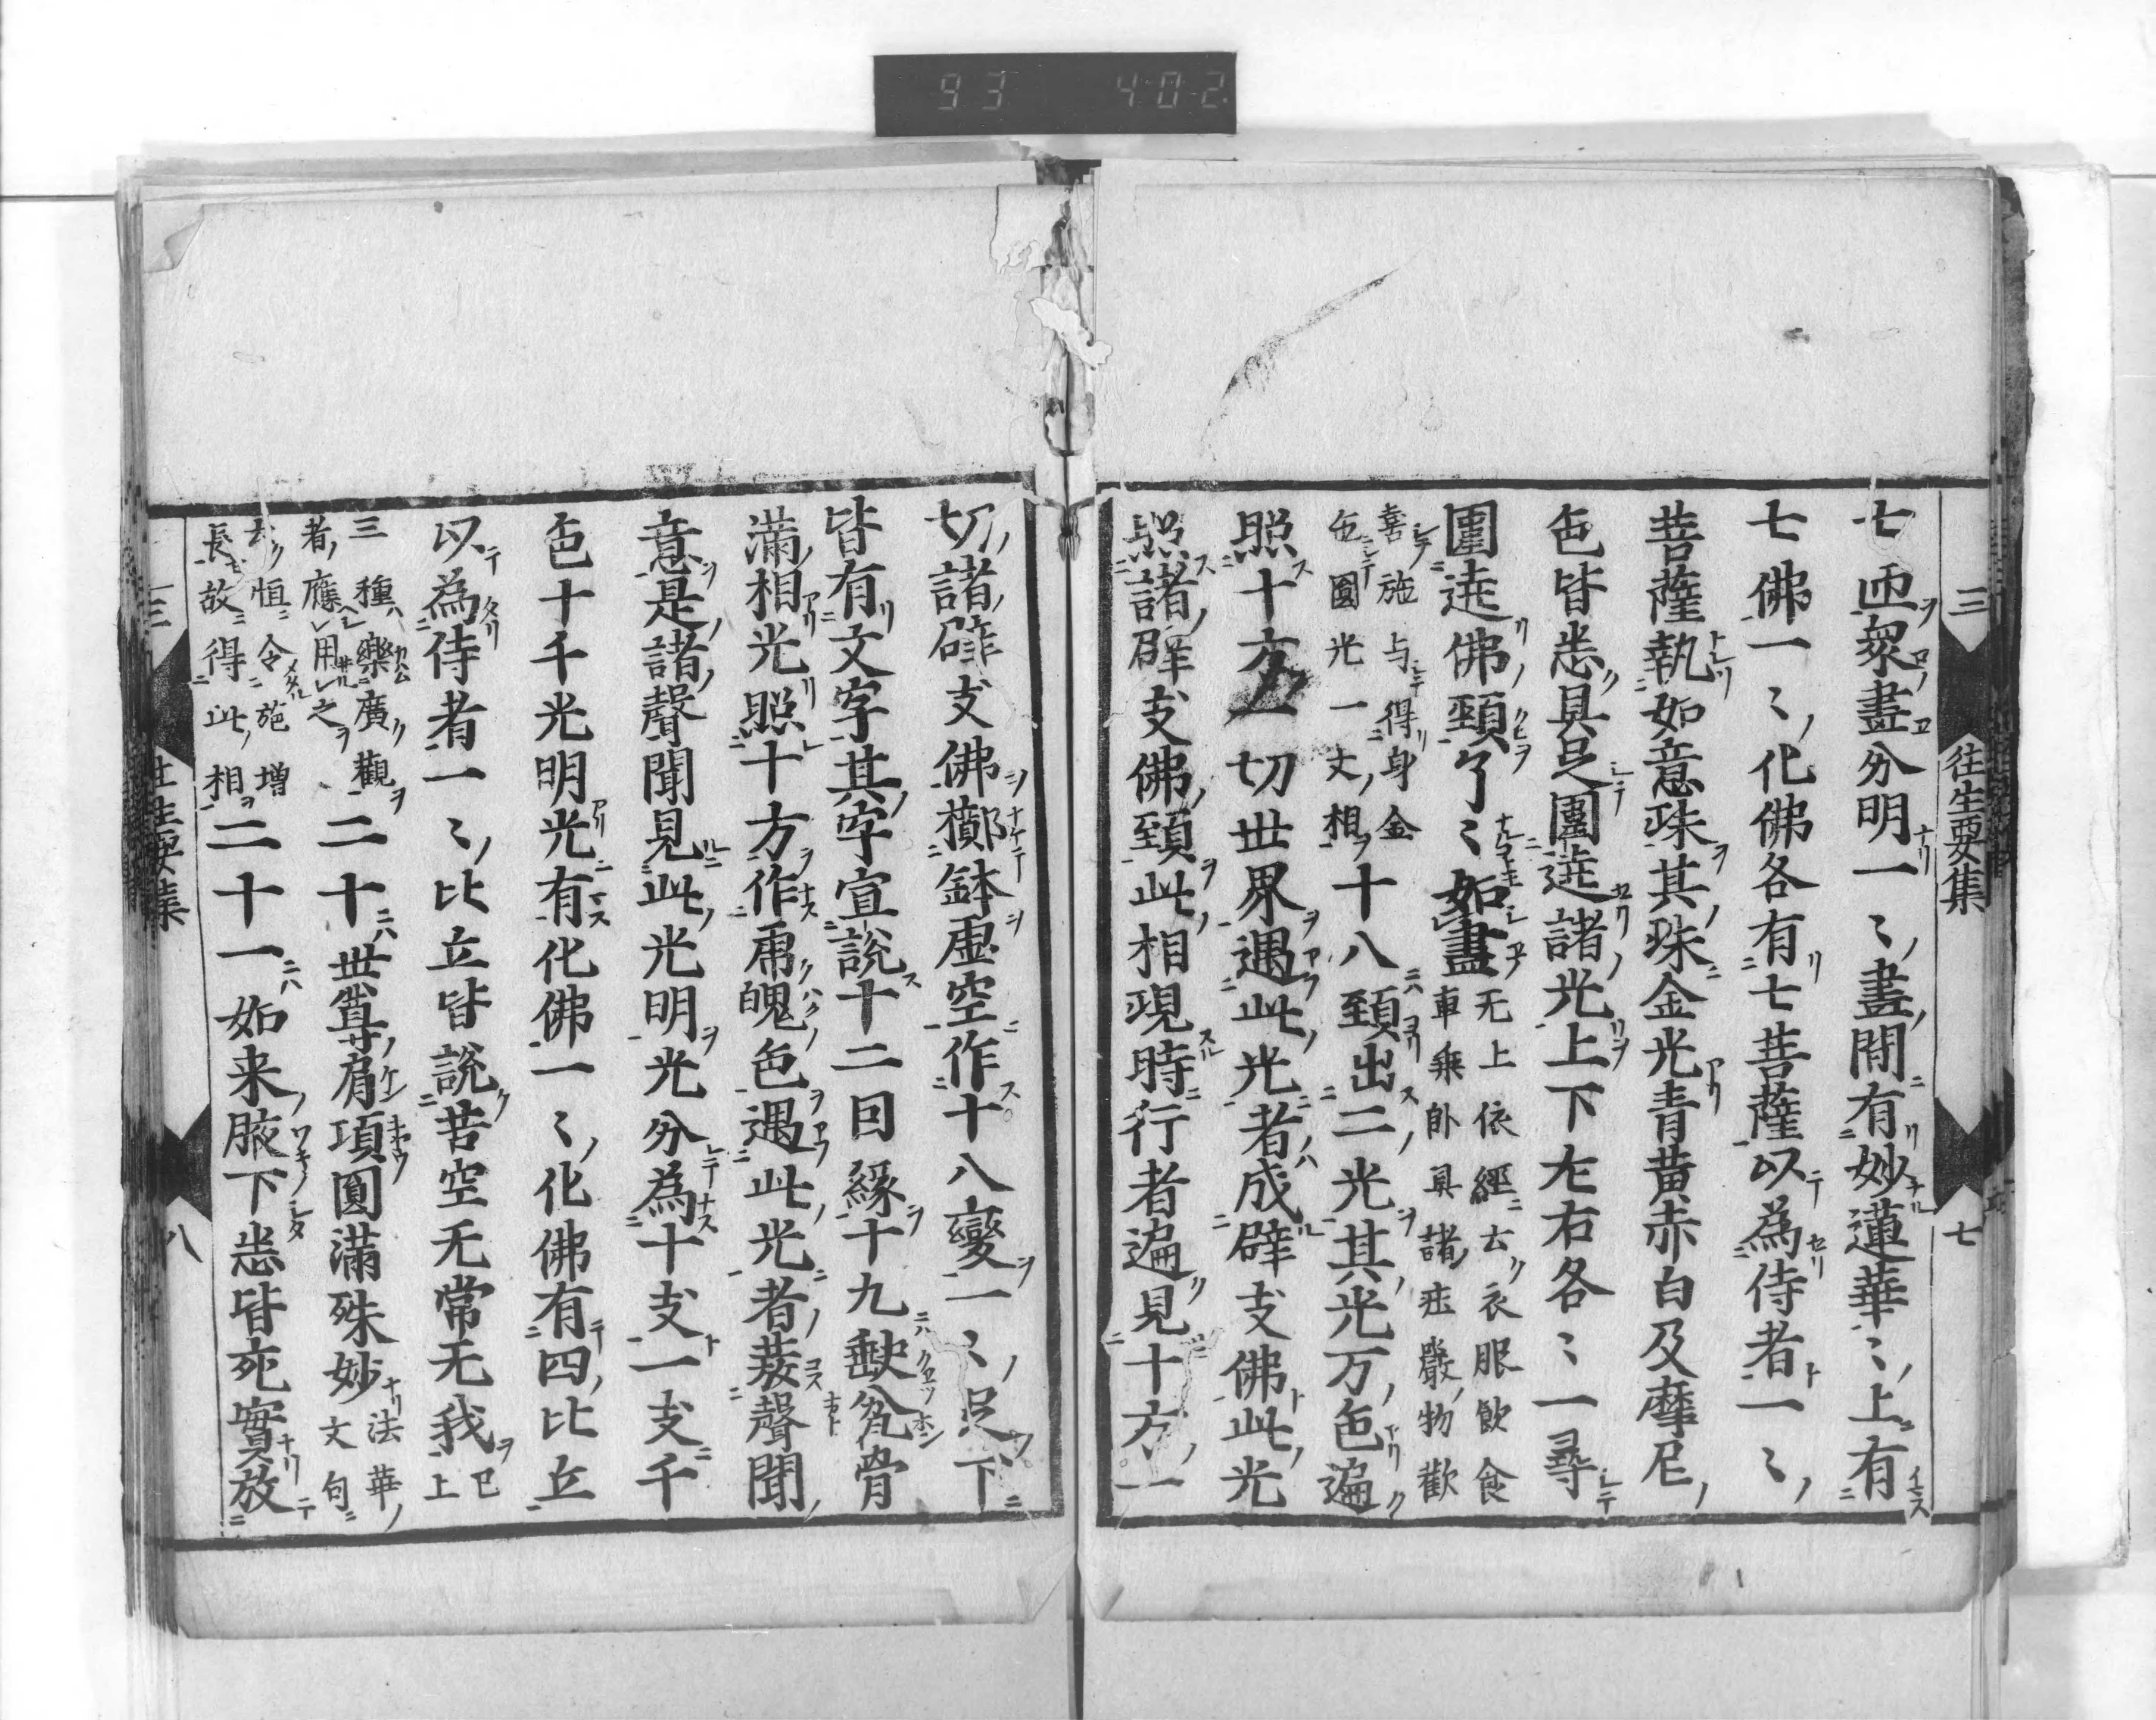 93 40-2
三 往生要集 七
七匝衆畫分明一〻畫間有妙蓮華〻上有
七佛一〻化佛各有七菩薩以為侍者一〻
菩薩執如意珠其珠金光青黄赤白及摩尼
色皆悉具足圍遶諸光上下左右各〻一尋
圍遶佛頸了〻如畫
无上依經云衣服飲食
車乗卧具諸荘嚴物歡
喜施与得身金
色圓光一丈相
十八頸出二光其光万色遍
照十方一切世界遇此光者成辟支佛此光
照諸辟支佛頸此相現時行者遍見十方一
切諸辟支佛擲鉢虚空作十八變一〻足下
皆有文字其字宣説十二因縁十九缺瓫骨
滿相光照十方作虎魄色遇此光者發聲聞
意是諸聲聞見此光明光分為十支一支千
色十千光明光有化佛一〻化佛有四比丘
以為侍者一〻比丘皆説苦空无常无我
已上
三種樂廣觀
者應用之
二十世尊肩項圓滿殊妙
法華
文句
云恒令施増
長故得此相
二十一如来腋下悉皆充實放
三 往生要集 八